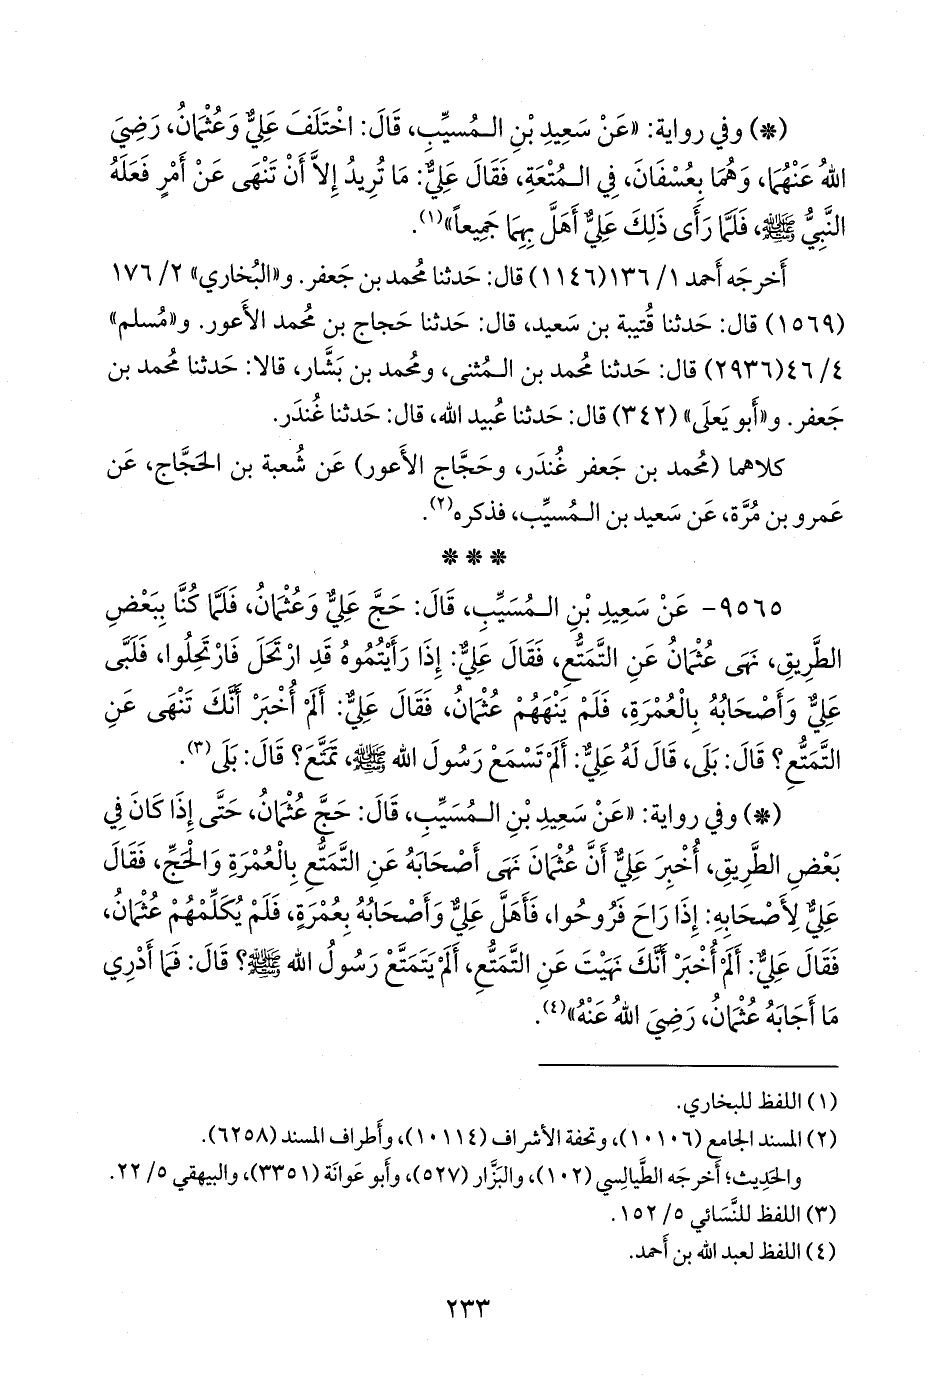 (*) وفي رواية: «عَنْ سَعِيدِ بْنِ الـمُسيِّبِ، قَالَ: اخْتَلَفَ عَلِيٌّ وَعُثْمَانُ، رَضِيَ
اللهُ عَنْهُمَا، وَهُمَا بِعُسْفَانَ، فِي الـمُتْعَةِ، فَقَالَ عَلِيٌّ: مَا تُرِيدُ إِلاَّ أَنْ تَنْهَى عَنْ أَمْرٍ فَعَلَهُ
النَّبِيُّ ﷺ، فَلَمَّا رَأَى ذَلِكَ عَلِيٌّ أَهَلَّ بِهِمَا جَمِيعاً»(١).
أَخرجَه أَحمد ١/ ١٣٦(١١٤٦) قال: حَدثنا مُحمد بن جَعفر. و«البُخاري» ٢/ ١٧٦
(١٥٦٩) قال: حَدثنا قُتيبة بن سَعيد، قال: حَدثنا حَجاج بن مُحمد الأَعور. و«مُسلم»
٤/ ٤٦(٢٩٣٦) قال: حَدثنا مُحمد بن الـمُثنى، ومُحمد بن بَشَّار، قالا: حَدثنا مُحمد بن
جَعفر. و«أَبو يَعلَى» (٣٤٢) قال: حَدثنا عُبيد الله، قال: حَدثنا غُندَر.
كلاهما (مُحمد بن جَعفر غُندَر، وحَجَّاج الأَعور) عَن شُعبة بن الحَجَّاج، عَن
عَمرو بن مُرَّة، عَن سَعيد بن الـمُسيِّب، فذكره(٢).
* * *
٩٥٦٥- عَنْ سَعِيدِ بْنِ الـمُسَيِّبِ، قَالَ: حَجَّ عَلِيٌّ وَعُثْمَانُ، فَلَمَّا كُنَّا بِبَعْضِ
الطَّرِيقِ، نَهَى عُثْمَانُ عَنِ التَّمَتُّعِ، فَقَالَ عَلِيٌّ: إِذَا رَأَيْتُمُوهُ قَدِ ارْتَحَلَ فَارْتَحِلُوا، فَلَبَّى
عَلِيٌّ وَأَصْحَابُهُ بِالْعُمْرَةِ، فَلَمْ يَنْهَهُمْ عُثْمَانُ، فَقَالَ عَلِيٌّ: أَلَمْ أُخْبَرْ أَنَّكَ تَنْهَى عَنِ
التَّمَتُّعِ؟ قَالَ: بَلَى، قَالَ لَهُ عَلِيٌّ: أَلَمْ تَسْمَعْ رَسُولَ الله ﷺ، تَمَتَّعَ؟ قَالَ: بَلَى(٣).
(*) وفي رواية: «عَنْ سَعِيدِ بْنِ الـمُسَيِّبِ، قَالَ: حَجَّ عُثْمَانُ، حَتَّى إِذَا كَانَ فِي
بَعْضِ الطَّرِيقِ، أُخْبِرَ عَلِيٌّ أَنَّ عُثْمَانَ نَهَى أَصْحَابَهُ عَنِ التَّمَتُّعِ بِالْعُمْرَةِ وَالْحَجِّ، فَقَالَ
عَلِيٌّ لِأَصْحَابِهِ: إِذَا رَاحَ فَرُوحُوا، فَأَهَلَّ عَلِيٌّ وَأَصْحَابُهُ بِعُمْرَةٍ، فَلَمْ يُكَلِّمْهُمْ عُثْمَانُ،
فَقَالَ عَلِيٌّ: أَلَمْ أُخْبَرْ أَنَّكَ نَهَيْتَ عَنِ التَّمَتُّعِ، أَلَمْ يَتَمَتَّعْ رَسُولُ الله ﷺ؟ قَالَ: فَمَا أَدْرِي
مَا أَجَابَهُ عُثْمَانُ، رَضِيَ اللهُ عَنْهُ»(٤).
(١) اللفظ للبخاري.
(٢) المسند الجامع (١٠١٠٦)، وتحفة الأشراف (١٠١١٤)، وأطراف المسند (٦٢٥٨).
والحَدِيث؛ أَخرجَه الطَّيالِسي (١٠٢)، والبَزَّار (٥٢٧)، وأَبو عَوانَة (٣٣٥١)، والبيهقي ٥/ ٢٢.
(٣) اللفظ للنَّسَائي ٥/ ١٥٢.
(٤) اللفظ لعبد الله بن أَحمد.
٢٣٣